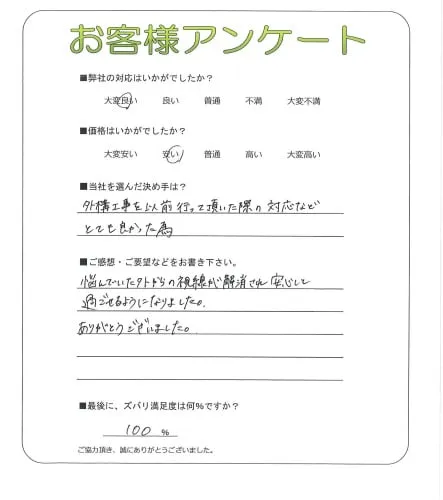 お客様アンケート
■弊社の対応はいかがでしたか？
大変良い 良い 普通 不満 大変不満
■価格はいかがでしたか？
大変安い 安い 普通 高い 大変高い
■当社を選んだ決め手は？
外構工事を以前行って頂いた際の対応など
とても良かった為
■ご感想・ご要望などをお書き下さい。
悩んでいた外からの視線が解消され安心して
過ごせるようになりました。
ありがとうございました。
■最後に、ズバリ満足度は何%ですか？
100 %
ご協力頂き、誠にありがとうございました。